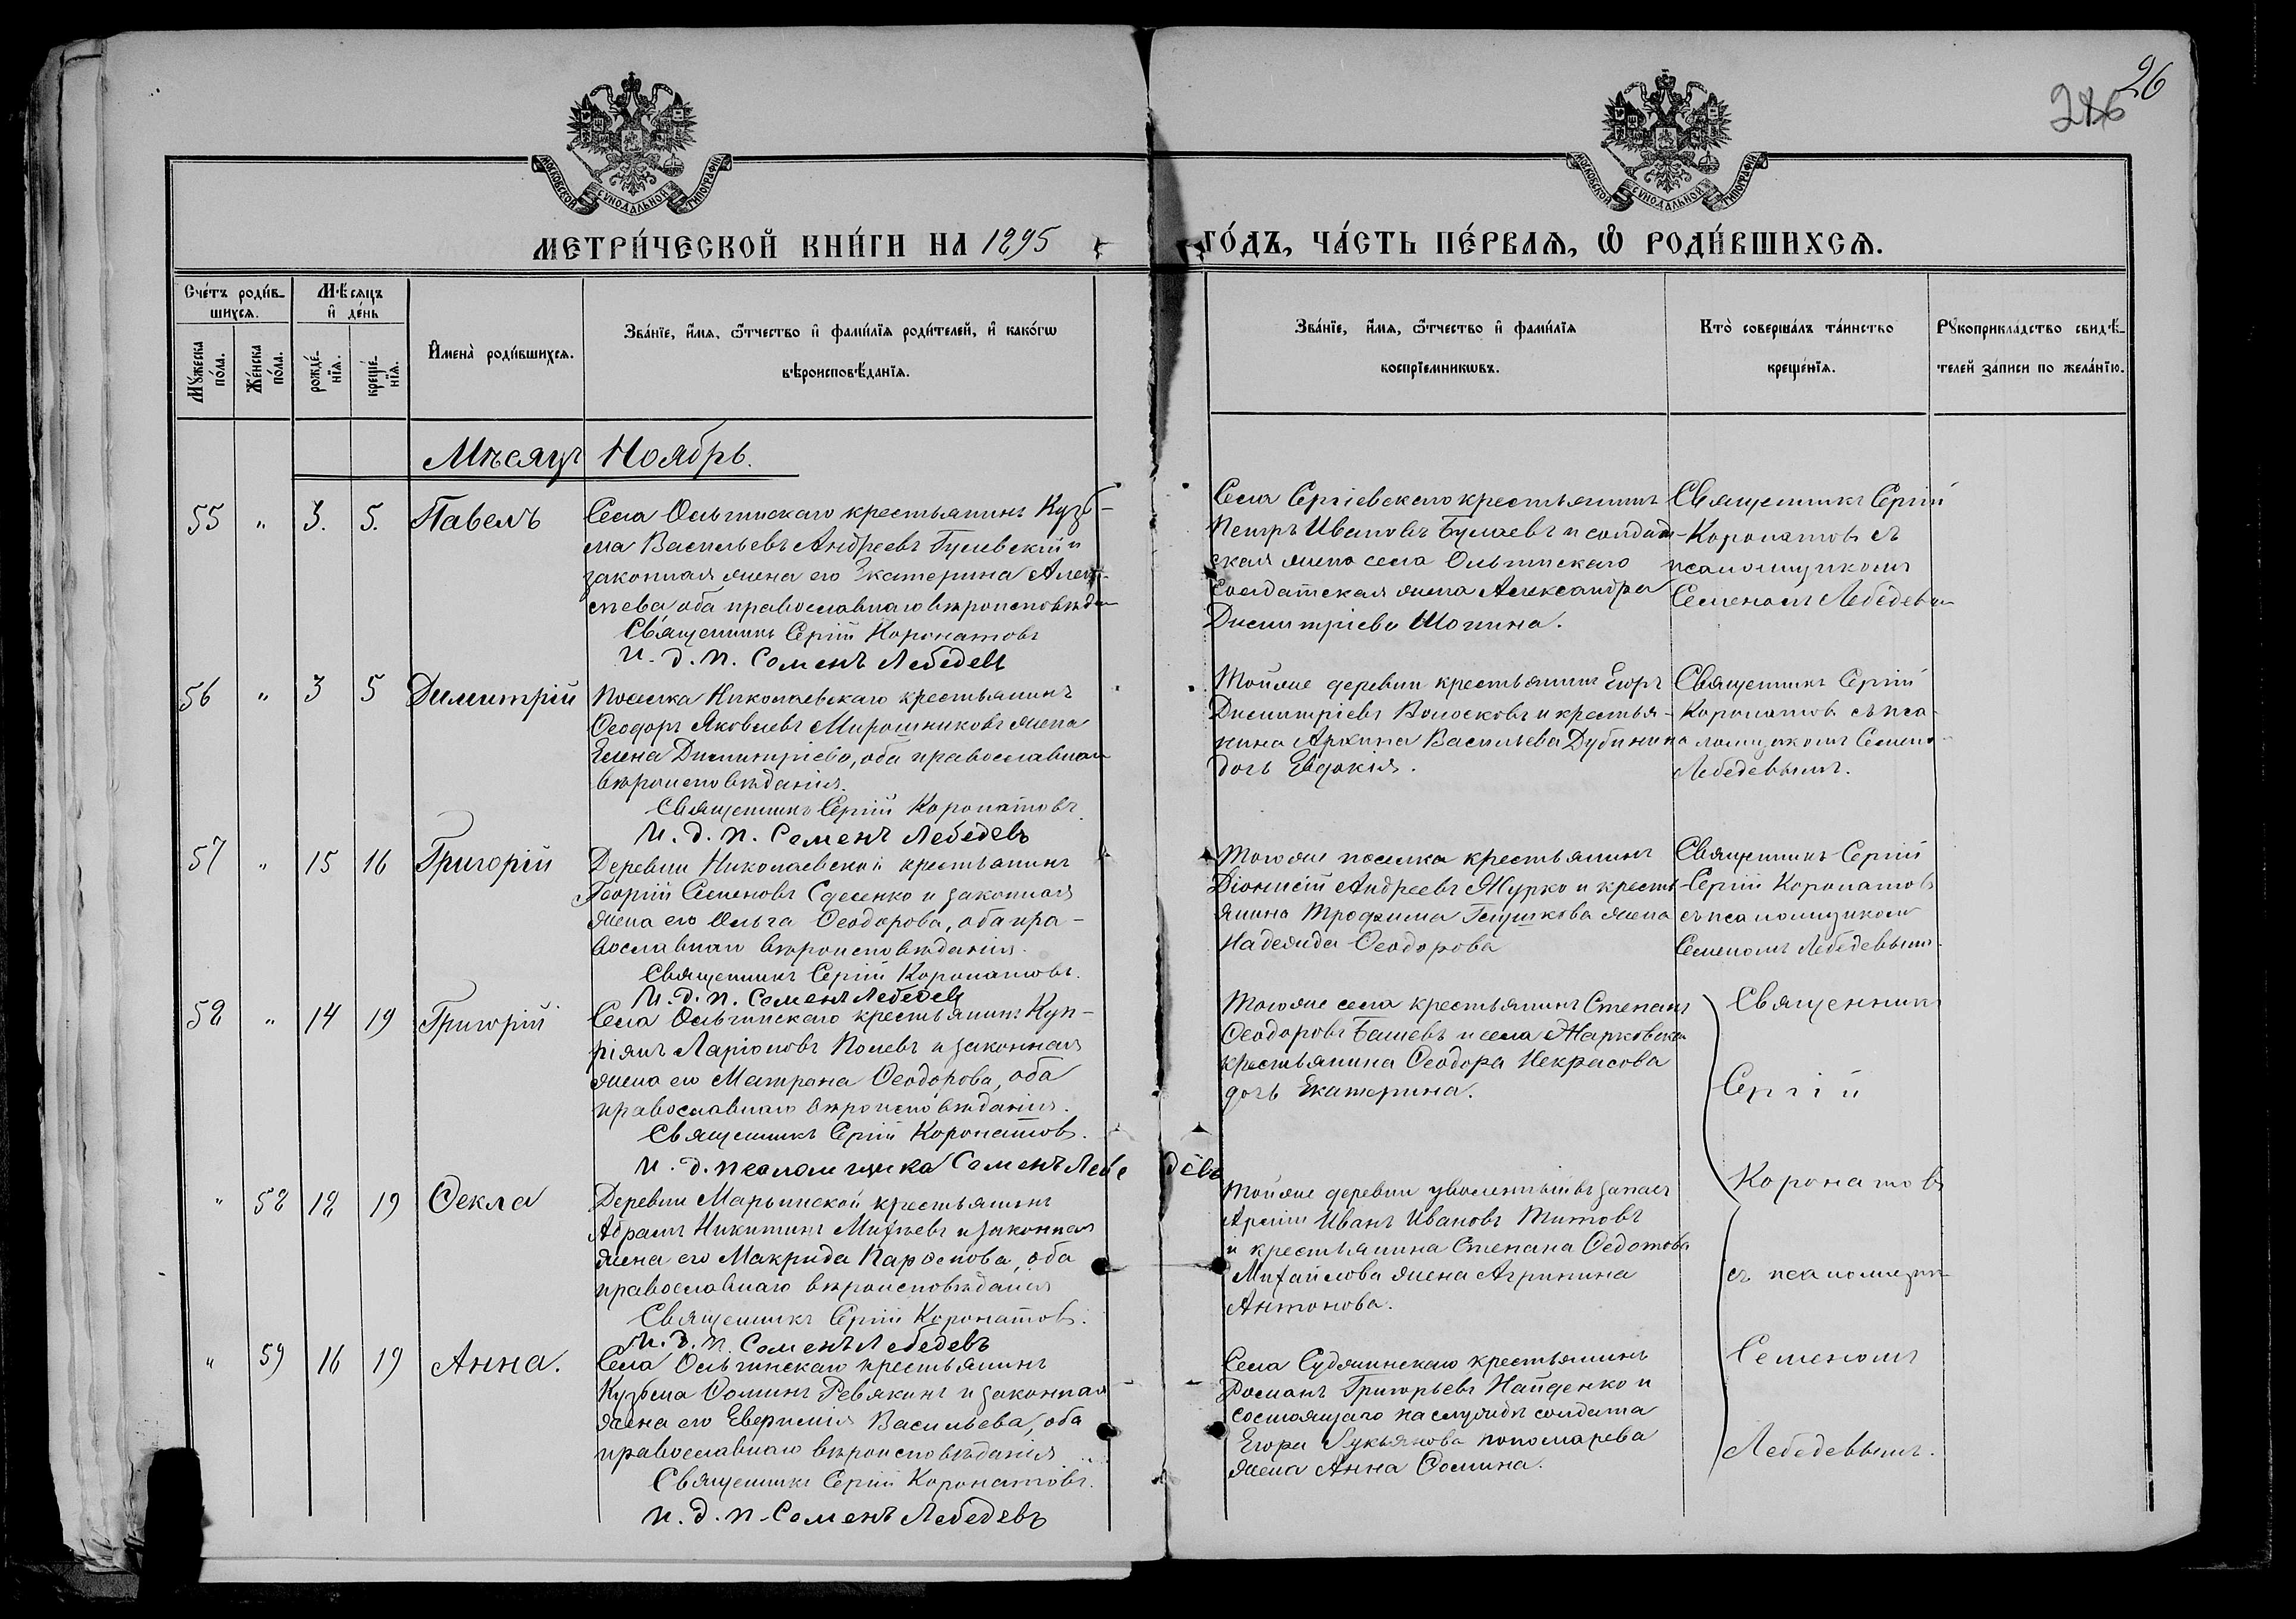 26
286
МОСКОВСКОЙ СѴНОДАЛЬНОЙ ТИПОГРАФІИ
МОСКОВСКОЙ СѴНОДАЛЬНОЙ ТИПОГРАФІИ
МЕТРИ́ЧЕСКОЙ КНИ́ГИ НА 1895
ГО́ДЪ, ЧА́СТЬ ПЕ́РВАѦ, Ѡ҆ РОДИ́ВШИХСѦ.
Сче́тъ роди́в-
шихсѧ.
Мꙋ́жеска по́ла.
Же́нска по́ла.
Мѣ́сѧцъ
и҆ де́нь
рожде́-
нїѧ.
креще́-
нїѧ.
И҆мена̀ роди́вшихсѧ.
Зва́нїе, и҆́мѧ, ѻ҆́тчество и҆ фами́лїѧ роди́телей, и҆ како́гѡ
вѣроисповѣ́данїѧ.
Зва́нїе, и҆́мѧ, ѻ҆́тчество и҆ фами́лїѧ
воспрїемникѡвъ.
Кто̀ соверша́лъ та́инство
креще́нїѧ.
Рꙋкоприкла́дство свидѣ́-
телей за́писи по жела́нїю.
Мѣсяцъ Ноябрь.
55 " 3. 5. Павелъ
Села Ольгинскаго крестьянинъ Кузь-
ма Васильевъ Андреевъ Гулевскій и
законная жена его Екатерина Алек-
сѣева оба православнаго вѣроисповѣда
Священникъ Сергій Коронатовъ
И. д. п. Семенъ Лебедевъ
Села Сергіевскаго крестьянинъ
Петръ Ивановъ Булаевъ и солдат-
ская жена села Ольгинскаго
Солдатская жена Александра
Димитріева Шонина.
Священникъ Сергій
Коронатовъ съ
псаломщикомъ
Семеномъ Лебедевым
56 " 3 5 Димитрій
Поселка Николаевскаго крестьянинъ
Ѳеодоръ Яковлевъ Мирошниковъ жена
Елена Димитріева, оба православнаго
вѣроисповѣданія.
Священникъ Сергій Коронатовъ.
И. д. п. Семенъ Лебедевъ
Той же деревни крестьянинъ Егоръ
Димитріевъ Волосковъ и крестья-
нина Архипа Васильева Дубинина
дочь Евдокія.
Священникъ Сергій
Коронатовъ съ пса-
ломщикомъ Семено
Лебедевымъ.
57 " 15 16 Григорій
Деревни Николаевской крестьянинъ
Георгій Семеновъ и законная
жена его Ольга Ѳеодорова, оба пра-
вославнаго вѣроисповѣданія.
Священникъ Сергій Коронатовъ.
И. д. п. Семенъ Лебедевъ
Того же поселка крестьянинъ
Діонисій Андреевъ Журко и кресть-
янина Трофима Глушкова жена
Надежда Ѳеодорова
Священникъ Сергій
Сергій Коронатовъ
съ псаломщикомъ
Семеномъ Лебедевымъ.
58 " 14 19 Григорій
Села Ольгинскаго крестьянинъ Куп-
ріянъ Ларіоновъ Полевъ и законная
жена его Матрона Ѳеодорова, оба
православнаго вѣроисповѣданія.
Священникъ Сергій Коронатовъ.
И. д. псаломщика Семенъ Лебедевъ
Того же села крестьянинъ Степанъ
Ѳеодоровъ Башевъ и села Жарковска
крестьянина Ѳеодора Некрасова
дочь Екатерина.
Священникъ
Сергій
Коронатовъ
" 58 18 19 Ѳекла
Деревни Марьинской крестьянинъ
Абрамъ Никитинъ и законная
жена его Макрида Парѳенова, оба
православнаго вѣроисповѣданія
Священникъ Сергій Коронатовъ.
И. д. п. Семенъ Лебедевъ
Той же деревни уволенный въ запасъ
Арміи Иванъ Ивановъ Титовъ
и крестьянина Степана Ѳедотова
Михайлова жена Агрипина
Антонова.
съ псаломщик
" 59 16 19 Анна.
Села Ольгинскаго крестьянинъ
Кузьма Ѳоминъ Ревякинъ и законная
жена его Евфимія Васильева, оба
православнаго вѣроисповѣданія
Священникъ Сергій Коронатовъ.
И. д. п. Семенъ Лебедевъ
Села Судженскаго крестьянинъ
Романъ Григорьевъ Найденко и
состоящаго на службѣ солдата
Егора Лукьянова Пономарева
жена Анна Ѳомина.
Семеномъ
Лебедевымъ.